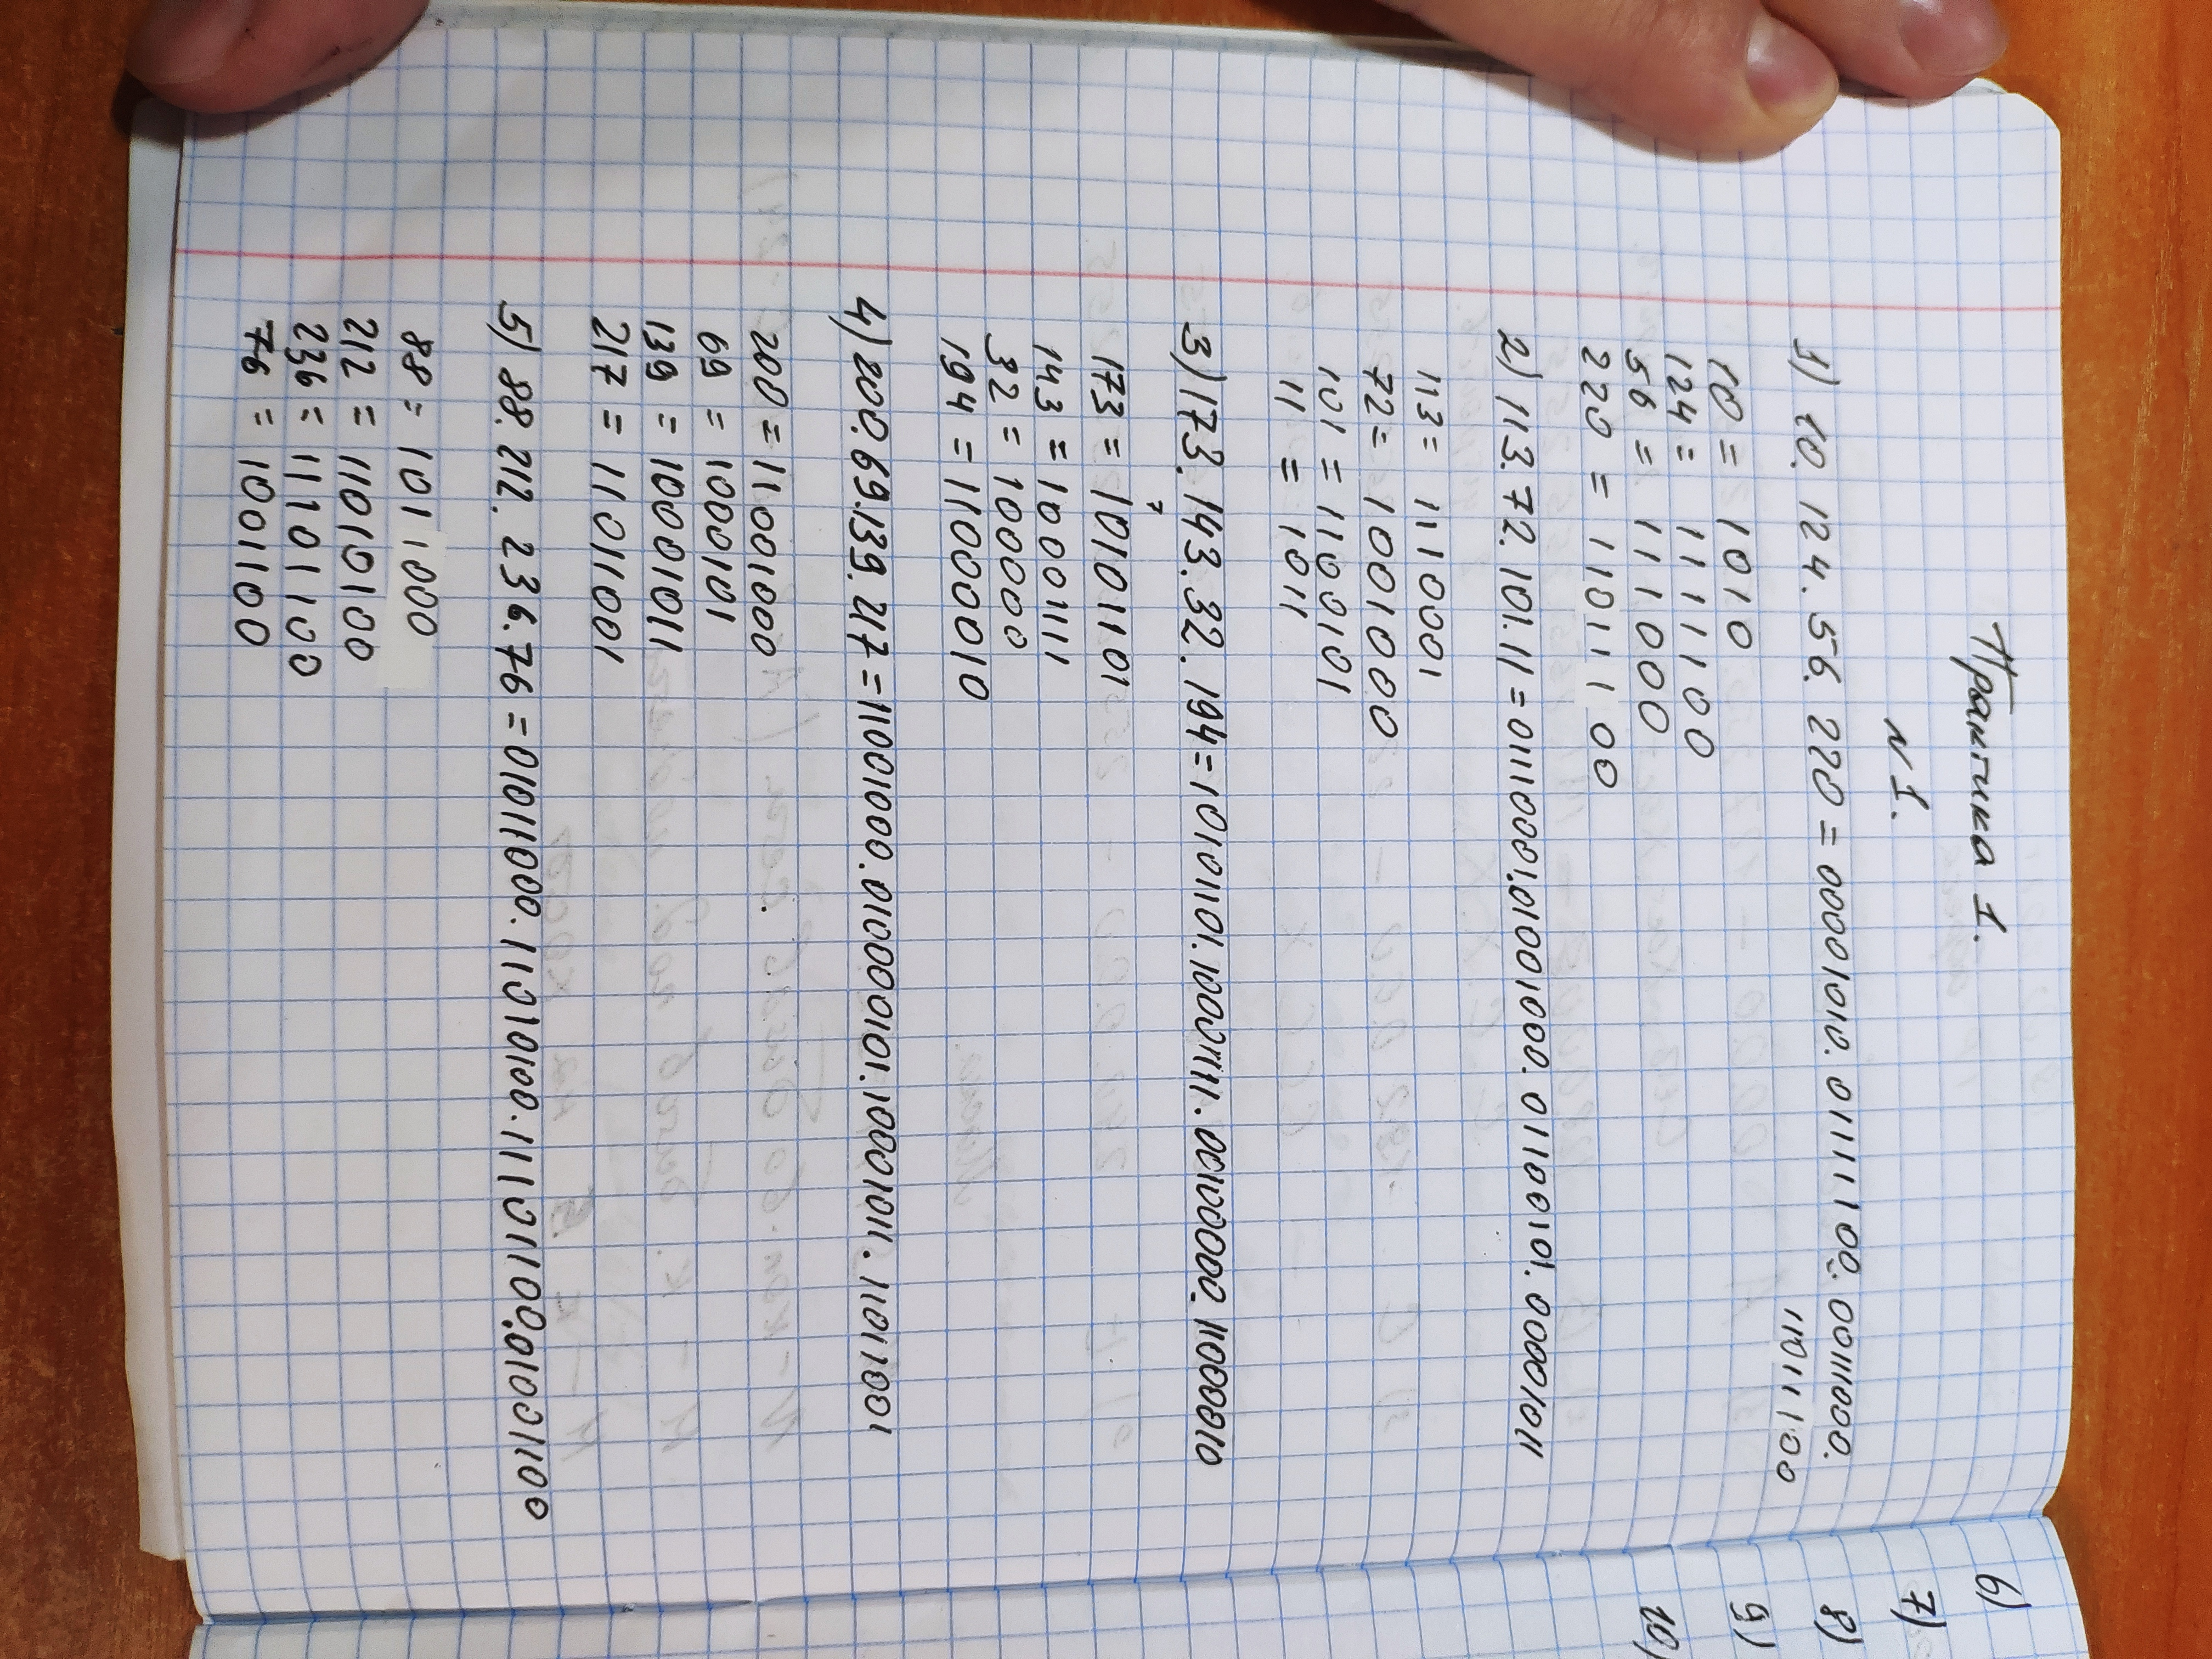 Практика 1.
№1.
1) 10. 124. 56. 220 = 00001010. 01111100. 00111000.
11011100
10 = 1010
124 = 1111100
56 = 111000
220 = 11011100
2) 113. 72. 101. 11 = 01110001.01001000. 01100101. 00001011
113 = 1110001
72 = 1001000
101 = 1100101
11 = 1011
3) 173. 143. 32. 194 = 10101101. 10001111. 00100000. 11000010
173 = 10101101
143 = 10001111
32 = 100000
194 = 11000010
4) 200. 69. 139. 217 = 11001000. 01000101. 10001011. 11011001
200 = 11001000
69 = 1000101
139 = 10001011
217 = 11011001
5) 88. 212. 236. 76 = 01011000. 11010100. 11101100. 01001100
88 = 1011000
212 = 11010100
236 = 11101100
76 = 1001100
6)
7)
8)
9)
10)